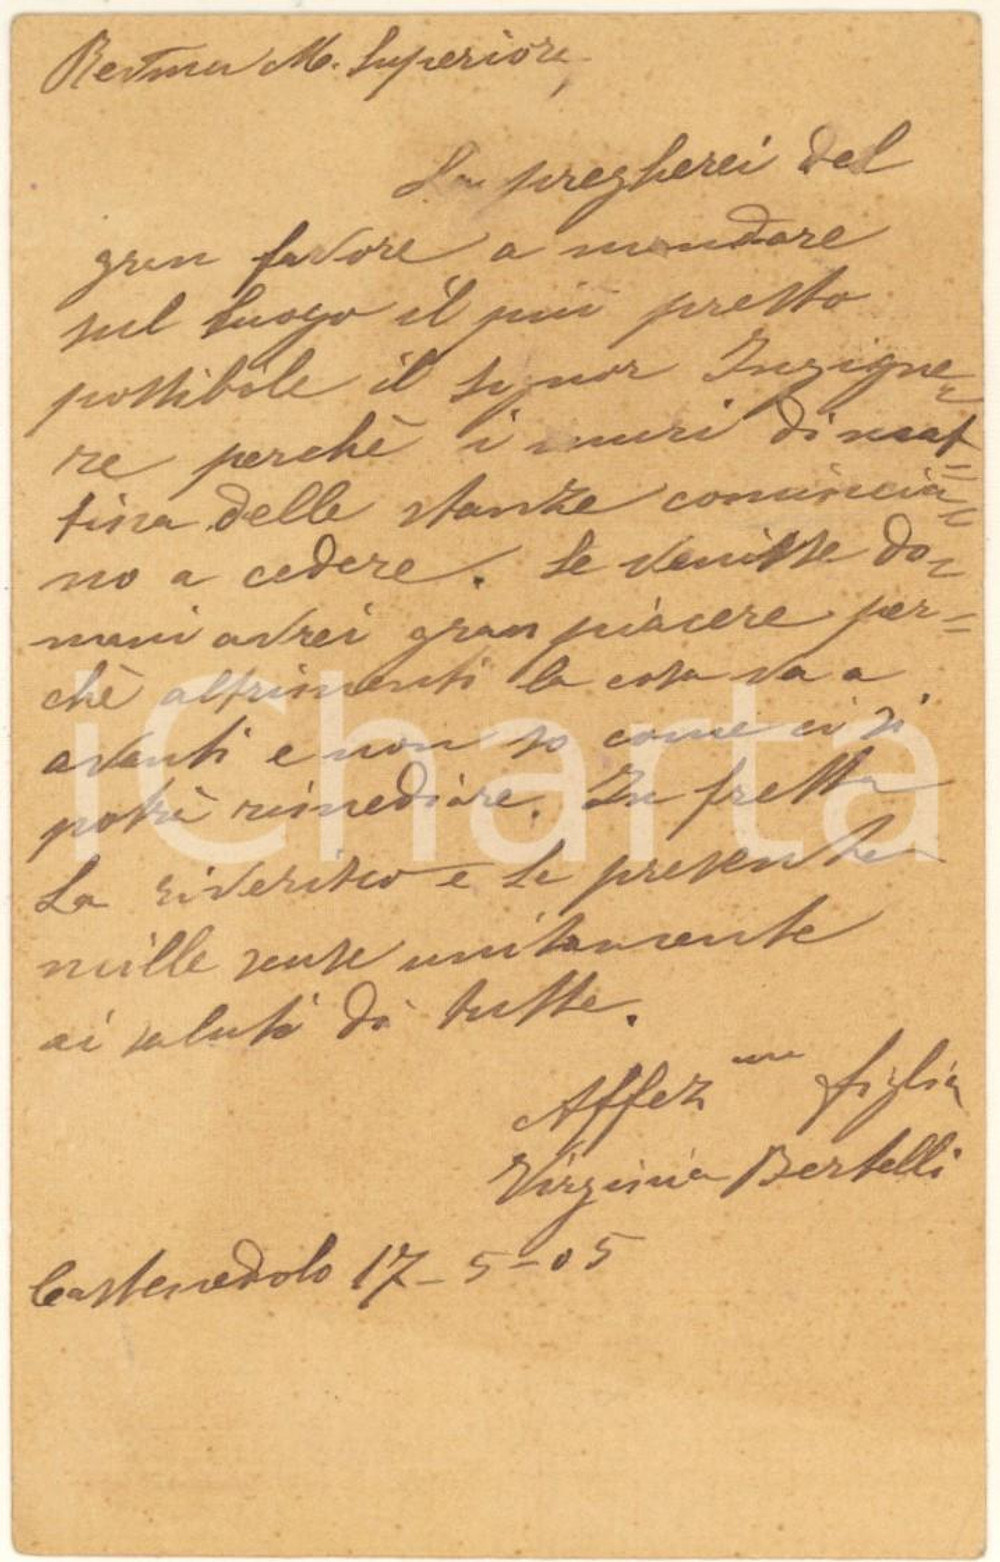 Rev.ma M. Superiora,
La pregherei del
gran favore a mandare
sul luogo il più presto
possibile il signor Ingigne=
re perchè i muri di
tina delle stanze comincia=
no a cedere. Se venisse do=
mani avrei gran piacere per=
chè altrimenti la cosa va a
avanti e non so come ci si
potrà rimediare. In fretta
La riverisco e Le presento
mille scuse unitamente
ai saluti di tutte.
Affez.ma figlia
Virginia Bertelli
Castenedolo 17-5-05
iCharta